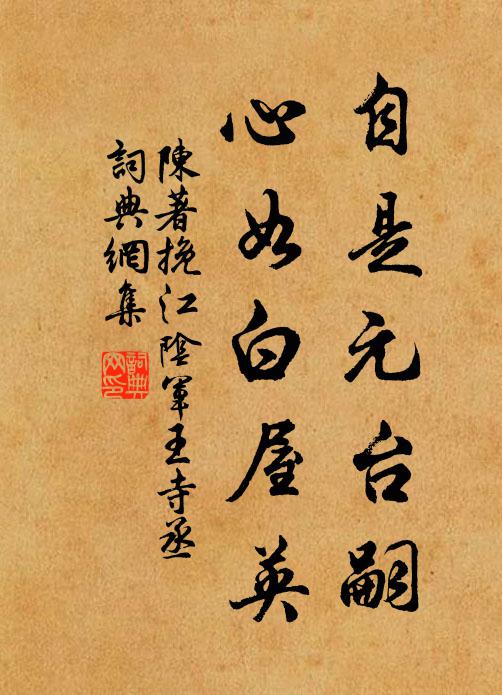 自是元台嗣
心如白屋英
陳著挽江陰軍王寺丞
詞典網集
詞典网印